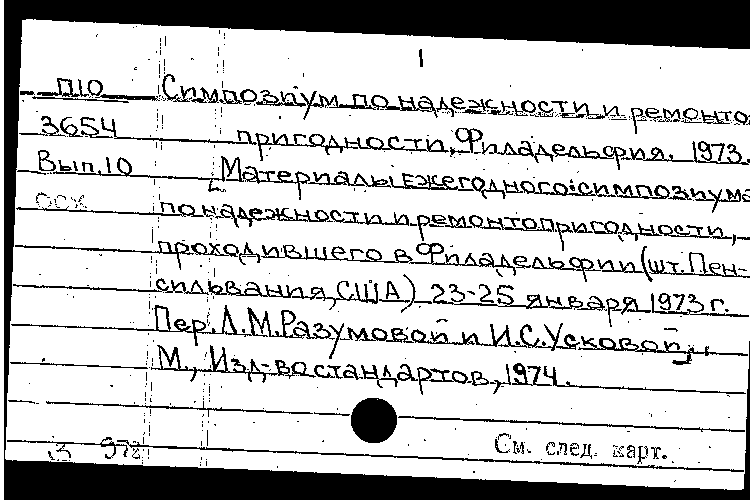 1
П10 Симпозиум по надежности и ремонто-
3654 пригодности, Филадельфия. 1973.
Вып.10 [Материалы ежегодного симпозиума
ОСХ по надежности и ремонтопригодности,
проходившего в Филадельфии (шт. Пен-
сильвания, США) 23-25 января 1973 г.
Пер. Л.М. Разумовой и И.С. Усковой].
М., Изд-во стандартов, 1974.
См. след. карт.